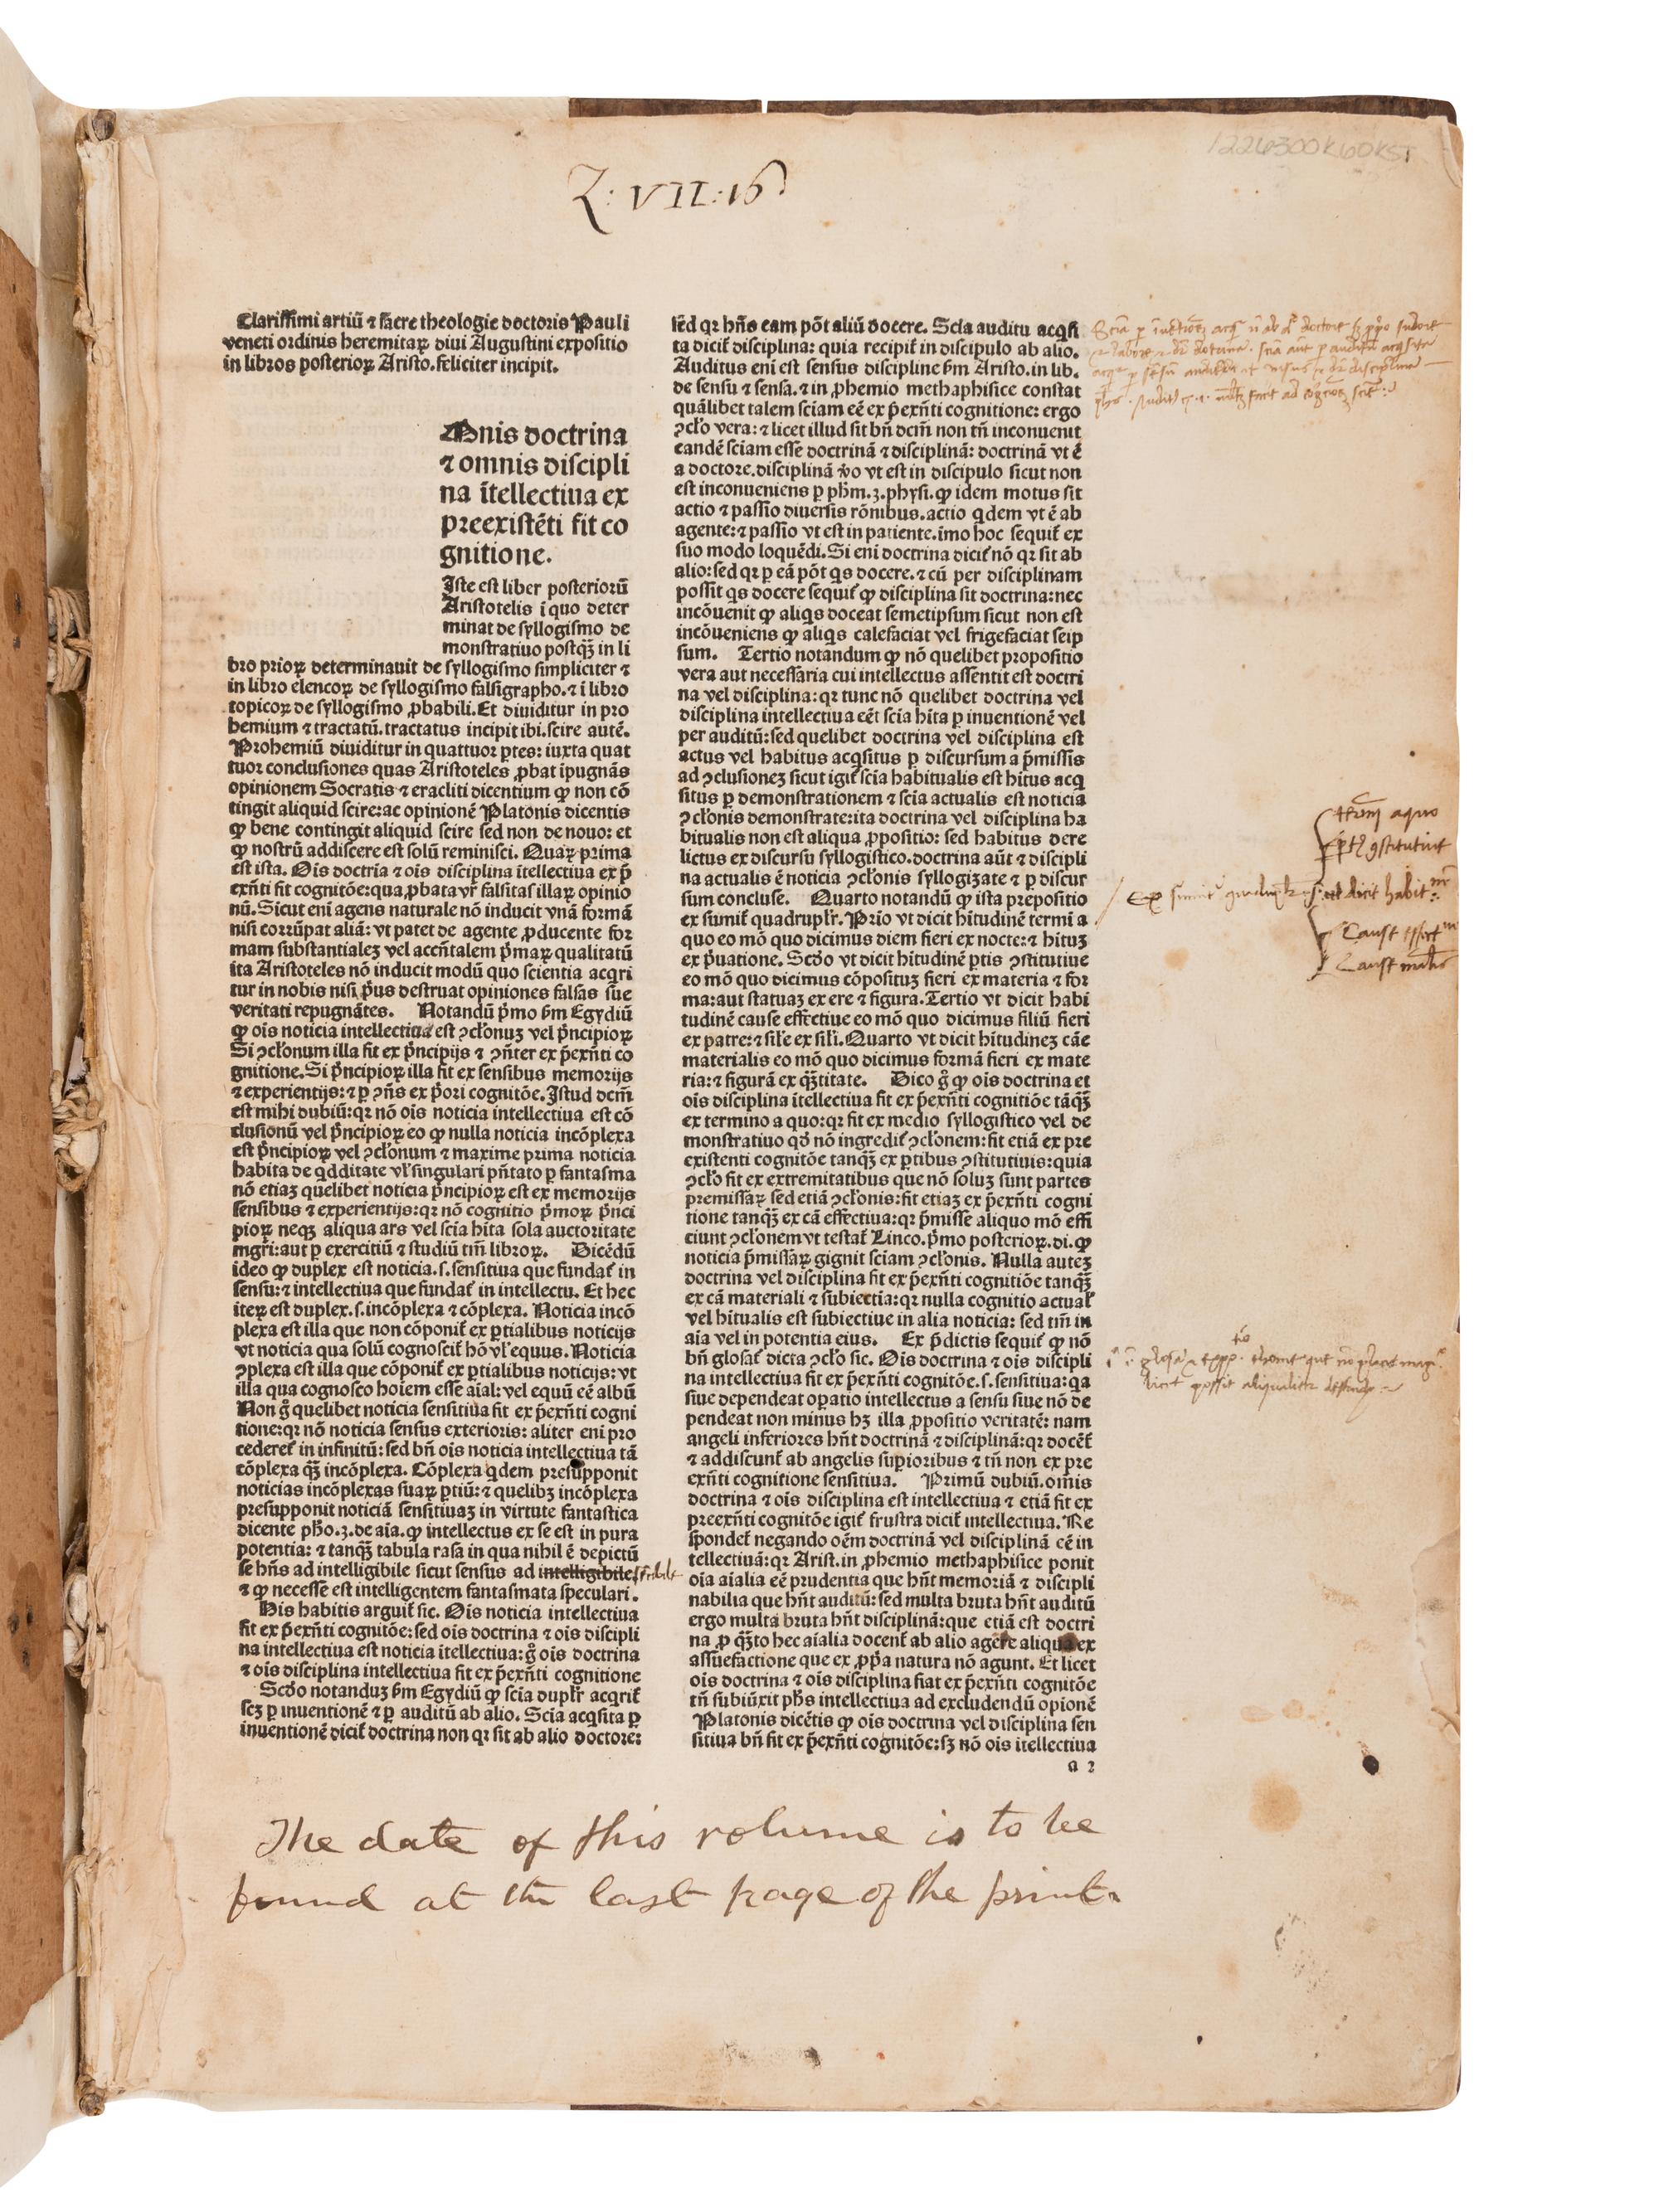 1226300K60KST
Z: VII: 16
Clarissimi artiũ ⁊ sacre theologie doctoris Pauli
veneti ordinis heremitaꝝ diui Augustini expositio
in libros posterioꝝ Aristo. feliciter incipit.
Omnis doctrina
⁊ omnis discipli
na ĩtellectiua ex
preexistẽti fit co
gnitione.
Iste est liber posterioruũ
Aristotelis ĩ quo deter
minat de syllogismo de
monstratiuo postqȝ̃ in li
bro prioꝝ determinauit de syllogismo simpliciter ⁊
in libro elencoꝝ de syllogismo falsigrapho. ⁊ ĩ libro
topicoꝝ de syllogismo ꝓbabili. Et diuiditur in pro
hemium ⁊ tractatũ. tractatus incipit ibi. scire autẽ.
Prohemiũ diuiditur in quattuor ꝑtes: iuxta quat
tuor conclusiones quas Aristoteles ꝓbat ĩpugnãs
opinionem Socratis ⁊ eracliti dicentium ꝙ non cõ
tingit aliquid scire: ac opinionẽ Platonis dicentis
ꝙ bene contingit aliquid scire sed non de nouo: et
ꝙ nostrũ addiscere est solũ reminisci. Quaꝝ prima
est ista. Oĩs doctria ⁊ oĩs disciplina ĩtellectiua ex p̃
exñti fit cognitõe: qua ꝓbata vr̃ falsitas illaꝝ opinio
nũ. Sicut eni agens naturale nõ inducit vnã formã
nisi corrũpat aliã: vt patet de agente ꝓducente for
mam substantialeȝ vel accñtalem p̃maꝝ qualitatũ
ita Aristoteles nõ inducit modũ quo scientia acqri
tur in nobis nisi p̃us destruat opiniones falsas sue
veritati repugnãtes. Notandũ p̃mo ẜm Egydiũ
ꝙ oĩs noticia intellectiua est ꝯcl̃onuȝ vel p̃ncipioꝝ
Si ꝯcl̃onum illa fit ex p̃ncipijs ⁊ ꝯñter ex p̃exñti co
gnitione. Si p̃ncipioꝝ illa fit ex sensibus memorijs
⁊ experientijs: ⁊ ꝑ ꝯñs ex p̃ori cognitõe. Istud dcm̃
est mihi dubiũ: qꝛ nõ oĩs noticia intellectiua est cõ
clusionũ vel p̃ncipioꝝ eo ꝙ nulla noticia incõplexa
est p̃ncipioꝝ vel ꝯcl̃onum ⁊ maxime prima noticia
habita de qdditate vl̃ singulari pñtato ꝑ fantasma
nõ etiaȝ quelibet noticia p̃ncipioꝝ est ex memorijs
sensibus ⁊ experientijs: qꝛ nõ cognitio p̃moꝝ p̃nci
pioꝝ neqȝ aliqua ars vel scĩa hĩta sola auctoritate
mgr̃i: aut ꝑ exercitiũ ⁊ studiũ tm̃ libroꝝ. Dicẽdũ
ideo ꝙ duplex est noticia. s. sensitiua que fundat̃ in
sensu: ⁊ intellectiua que fundat̃ in intellectu. Et hec
iteꝝ est duplex. s. incõplexa ⁊ cõplexa. Noticia incõ
plexa est illa que non cõponit̃ ex ꝑtialibus noticijs
vt noticia qua solũ cognoscit̃ hõ vl̃ equus. Noticia
ꝯplexa est illa que cõponit̃ ex ꝑtialibus noticijs: vt
illa qua cognosco hoĩem esse aĩal: vel equũ eẽ albũ
Non g̊ quelibet noticia sensitiua fit ex p̃exñti cogni
tione: qꝛ nõ noticia sensus exterioris: aliter eni pro
cederet̃ in infinitũ: sed bñ oĩs noticia intellectiua tã
cõplexa qȝ̃ incõplexa. Cõplexa qdem presupponit
noticias incõplexas suaꝝ ꝑtiũ: ⁊ quelibȝ incõplexa
presupponit noticiã sensitiuaȝ in virtute fantastica
dicente ph̃o. 3. de aĩa. ꝙ intellectus ex se est in pura
potentia: ⁊ tanqȝ̃ tabula rasa in qua nihil ẽ depictũ
se hñs ad intelligibile sicut sensus ad intelligibile sẽsibile
⁊ ꝙ necesse est intelligentem fantasmata speculari.
His habitis arguit̃ sic. Oĩs noticia intellectiua
fit ex p̃exñti cognitõe: sed oĩs doctrina ⁊ oĩs discipli
na intellectiua est noticia ĩtellectiua: g̊ oĩs doctrina
⁊ oĩs disciplina intellectiua fit ex p̃exñti cognitione
Scd̃o notanduȝ ẜm Egydiũ ꝙ scĩa duplr̃ acqrit̃
scȝ ꝑ inuentionẽ ⁊ ꝑ auditũ ab alio. Scia acqsita ꝑ
inuentionẽ dicit̃ doctrina non qꝛ sit ab alio doctore:
sed qꝛ hñs eam põt aliũ docere. Scĩa auditu acqsi
ta dicit̃ disciplina: quia recipit̃ in discipulo ab alio.
Auditus eni est sensus discipline ẜm Aristo. in lib.
de sensu ⁊ sensa. ⁊ in ꝓhemio methaphisice constat
quãlibet talem sciam eẽ ex p̃exñti cognitione: ergo
ꝯcl̃o vera: ⁊ licet illud sit bñ dcm̃ non tñ inconuenit
eandẽ sciam esse doctrinã ⁊ disciplinã: doctrinã vt ẽ
a doctore. disciplinã ṽo vt est in discipulo sicut non
est inconueniens ꝑ ph̃m. 3. physi. ꝙ idem motus sit
actio ⁊ passio diuersis rõnibus. actio qdem vt ẽ ab
agente: ⁊ passio vt est in patiente. imo hoc sequit̃ ex
suo modo loquẽdi. Si eni doctrina dicit̃ nõ qꝛ sit ab
alio: sed qꝛ ꝑ eã põt qs docere. ⁊ cũ per disciplinam
possit qs docere sequit̃ ꝙ disciplina sit doctrina: nec
incõuenit ꝙ aliqs doceat semetipsum sicut non est
incõueniens ꝙ aliqs calefaciat vel frigefaciat seip
sum. Tertio notandum ꝙ nõ quelibet propositio
vera aut necessaria cui intellectus assentit est doctri
na vel disciplina: qꝛ tunc nõ quelibet doctrina vel
disciplina intellectiua eẽt scĩa hĩta ꝑ inuentionẽ vel
per auditũ: sed quelibet doctrina vel disciplina est
actus vel habitus acqsitus ꝑ discursum a p̃missis
ad ꝯclusioneȝ sicut igit̃ scĩa habitualis est hĩtus acq
situs ꝑ demonstrationem ⁊ scĩa actualis est noticia
ꝯcl̃onis demonstrate: ita doctrina vel disciplina ha
bitualis non est aliqua ꝓpositio: sed habitus dere
lictus ex discursu syllogistico. doctrina aũt ⁊ discipli
na actualis ẽ noticia ꝯcl̃onis syllogizate ⁊ ꝑ discur
sum concluse. Quarto notandũ ꝙ ista prepositio
ex sumit̃ quadruplr̃. Prĩo vt dicit hĩtudinẽ termi a
quo eo mõ quo dicimus diem fieri ex nocte: ⁊ hĩtuȝ
ex p̃uatione. Scd̃o vt dicit hĩtudinẽ ꝑtis ꝯstitutiue
eo mõ quo dicimus cõpositũȝ fieri ex materia ⁊ for
ma: aut statuaȝ ex ere ⁊ figura. Tertio vt dicit habi
tudinẽ cause effectiue eo mõ quo dicimus filiũ fieri
ex patre: ⁊ sil̃e ex sil̃i. Quarto vt dicit hĩtudineȝ cãe
materialis eo mõ quo dicimus formã fieri ex mate
ria: ⁊ figurã ex qȝ̃titate. Dico g̊ ꝙ oĩs doctrina et
oĩs disciplina ĩtellectiua fit ex p̃exñti cognitiõe tãqȝ̃
ex termino a quo: qꝛ fit ex medio syllogistico vel de
monstratiuo qd̃ nõ ingredit̃ ꝯcl̃onem: fit etiã ex pre
existenti cognitõe tanqȝ̃ ex ꝑtibus ꝯstitutiuis: quia
ꝯcl̃o fit ex extremitatibus que nõ soluȝ sunt partes
premissaꝝ sed etiã ꝯcl̃onis: fit etiaȝ ex p̃exñti cogni
tione tanqȝ̃ ex cã effectiua: qꝛ p̃misse aliquo mõ effi
ciunt ꝯcl̃onem vt testat̃ Linco. p̃mo posterioꝝ. di. ꝙ
noticia p̃missaꝝ gignit sciam ꝯcl̃onis. Nulla auteȝ
doctrina vel disciplina fit ex p̃exñti cognitiõe tanqȝ̃
ex cã materiali ⁊ subiectia: qꝛ nulla cognitio actual̃
vel hĩtualis est subiectiue in alia noticia: sed tm̃ in
aĩa vel in potentia eius. Ex p̃dictis sequit̃ ꝙ nõ
bñ glosat̃ dicta ꝯcl̃o sic. Oĩs doctrina ⁊ oĩs discipli
na intellectiua fit ex p̃exñti cognitõe. s. sensitiua: qa
siue dependeat oꝑatio intellectus a sensu siue nõ de
pendeat non minus hȝ illa ꝓpositio veritatẽ: nam
angeli inferiores hñt doctrinã ⁊ disciplinã: qꝛ docẽt̃
⁊ addiscunt̃ ab angelis suꝑioribus ⁊ tñ non ex pre
exñti cognitione sensitiua. Primũ dubiũ. om̃is
doctrina ⁊ oĩs disciplina est intellectiua ⁊ etiã fit ex
preexñti cognitõe igit̃ frustra dicit̃ intellectiua. Re
spondet̃ negando oẽm doctrinã vel disciplinã eẽ in
tellectiuã: qꝛ Arist. in ꝓhemio methaphisice ponit
oĩa aĩalia eẽ prudentia que hñt memoriã ⁊ discipli
nabilia que hñt auditũ: sed multa bruta hñt auditũ
ergo multa bruta hñt disciplinã: que etiã est doctri
na ꝓ qȝ̃to hec aĩalia docent̃ ab alio agere aliqua ex
assuefactione que ex ꝓpa natura nõ agunt. Et licet
oĩs doctrina ⁊ oĩs disciplina fiat ex p̃exñti cognitõe
tñ subiũxit ph̃s intellectiua ad excludendũ opionẽ
Platonis dicẽtis ꝙ oĩs doctrina vel disciplina sen
sitiua bñ fit ex p̃exñti cognitõe: sȝ nõ oĩs ĩtellectiua
a 2
a quo
ꝯstitutiue
Ex sumit quadruplr̃ dicit habit
Cause effect
Cause
possit aliqualiter
The date of this volume is to be
found at the last page of the print.